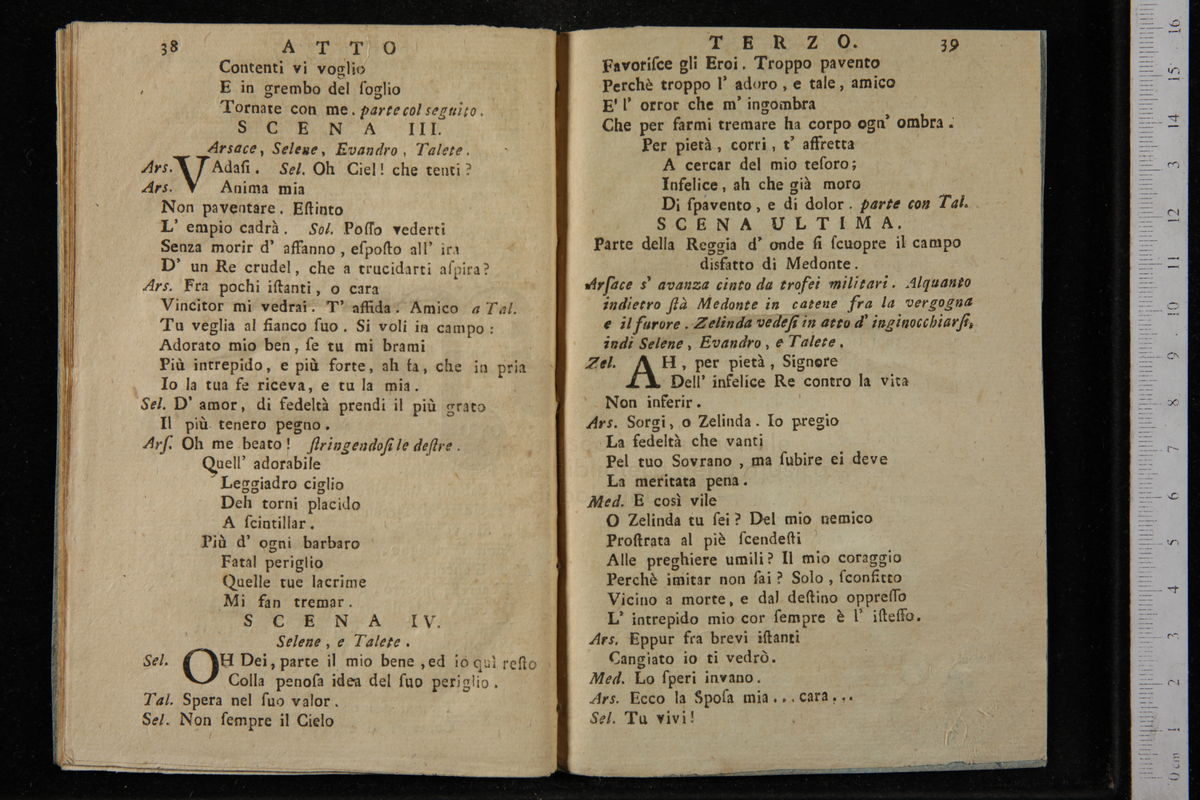 38 A T T O
Contenti vi voglio
E in grembo del ſoglio
Tornate con me. parte col seguito.
S C E N A III.
Arsace, Selene, Evandro, Talete.
Ars. VAdaſi. Sel. Oh Ciel! che tenti?
Ars. Anima mia
Non paventare. Eſtinto
L' empio cadrà. Sol. Poſſo vederti
Senza morir d' affanno, eſpoſto all' ira
D' un Re crudel, che a trucidarti aſpira?
Ars. Fra pochi iſtanti, o cara
Vincitor mi vedrai. T' affida. Amico a Tal.
Tu veglia al fianco ſuo. Si voli in campo:
Adorato mio ben, ſe tu mi brami
Più intrepido, e più forte, ah fa, che in pria
Io la tua fe riceva, e tu la mia.
Sel. D' amor, di fedeltà prendi il più grato
Il più tenero pegno.
Arſ. Oh me beato! ſtringendoſi le deſtre.
Quell' adorabile
Leggiadro ciglio
Deh torni placido
A ſcintillar.
Più d' ogni barbaro
Fatal periglio
Quelle tue lacrime
Mi fan tremar.
S C E N A IV.
Selene, e Talete.
Sel. OH Dei, parte il mio bene, ed io quì reſto
Colla penoſa idea del ſuo periglio.
Tal. Spera nel ſuo valor.
Sel. Non ſempre il Cielo
T E R Z O. 39
Favoriſce gli Eroi. Troppo pavento
Perchè troppo l' adoro, e tale, amico
E' l' orror che m' ingombra
Che per farmi tremare ha corpo ogn' ombra.
Per pietà, corri, t' affretta
A cercar del mio teſoro;
Infelice, ah che già moro
Di ſpavento, e di dolor. parte con Tal.
S C E N A U L T I M A.
Parte della Reggia d' onde ſi ſcuopre il campo
disfatto di Medonte.
Arſace s' avanza cinto da trofei militari. Alquanto
indietro ſtà Medonte in catene fra la vergogna
e il furore. Zelinda vedeſi in atto d' inginocchiarſi,
indi Selene, Evandro, e Talete.
Zel. AH, per pietà, Signore
Dell' infelice Re contro la vita
Non inferir.
Ars. Sorgi, o Zelinda. Io pregio
La fedeltà che vanti
Pel tuo Sovrano, ma ſubire ei deve
La meritata pena.
Med. E così vile
O Zelinda tu ſei? Del mio nemico
Proſtrata al piè ſcendeſti
Alle preghiere umili? Il mio coraggio
Perchè imitar non ſai? Solo, ſconfitto
Vicino a morte, e dal deſtino oppreſſo
L' intrepido mio cor ſempre è l' iſteſſo.
Ars. Eppur fra brevi iſtanti
Cangiato io ti vedrò.
Med. Lo ſperi invano.
Ars. Ecco la Spoſa mia... cara...
Sel. Tu vivi!
0 cm 1 2 3 4 5 6 7 8 9 10 11 12 13 14 15 16